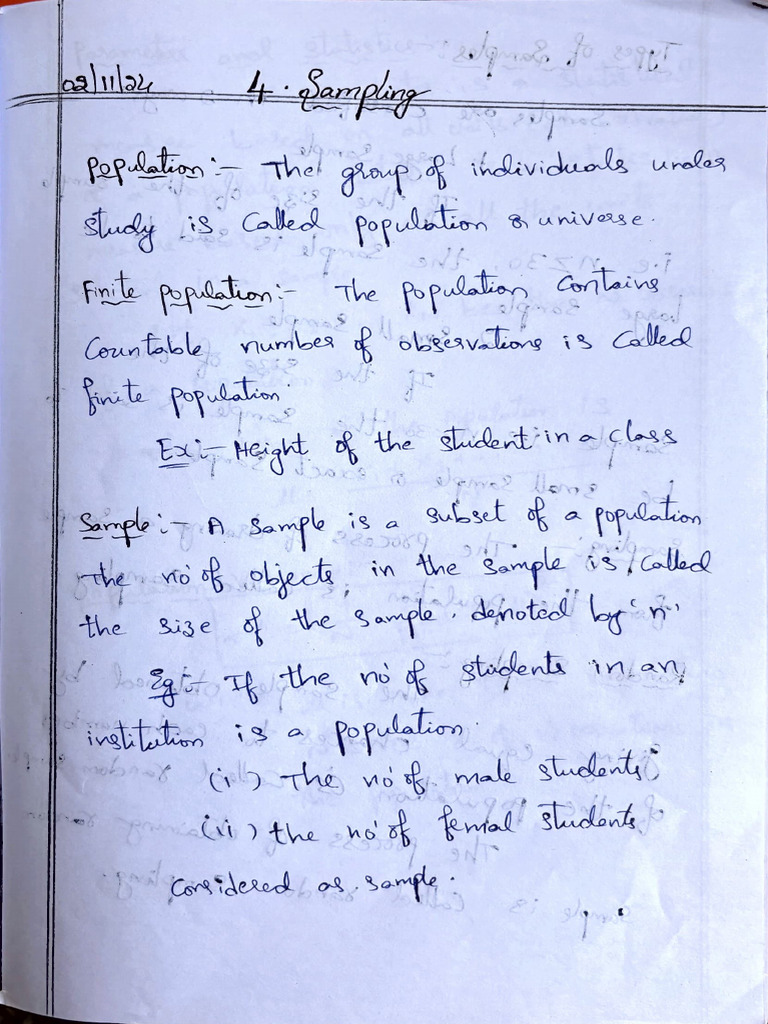 02/11/24 4. Sampling
Population :- The group of individuals under
study is called population & universe.
Finite population :- The population contains
Countable number of observations is called
finite population.
Ex :- Height of the student in a class
Sample :- A sample is a subset of a population
the no of objects in the sample is called
the size of the sample. denoted by 'n'
Eg :- If the no of students in an
institution is a population.
(i) The no of male students
(ii) the no of femal students
Considered as sample.